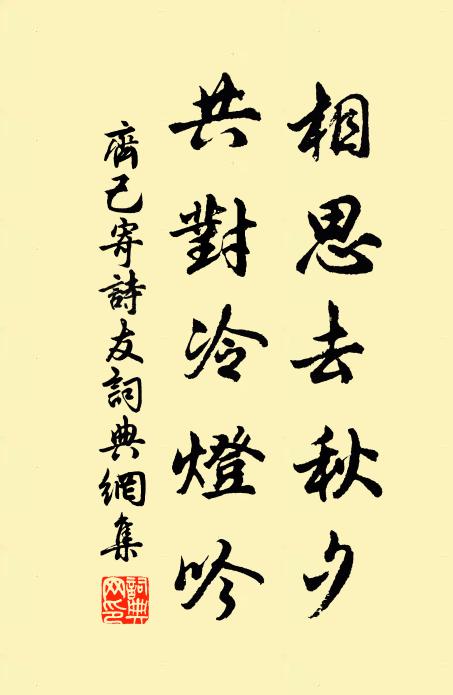 相思去秋夕
共對冷燈吟
齊己寄詩友詞典網集
詞典網印